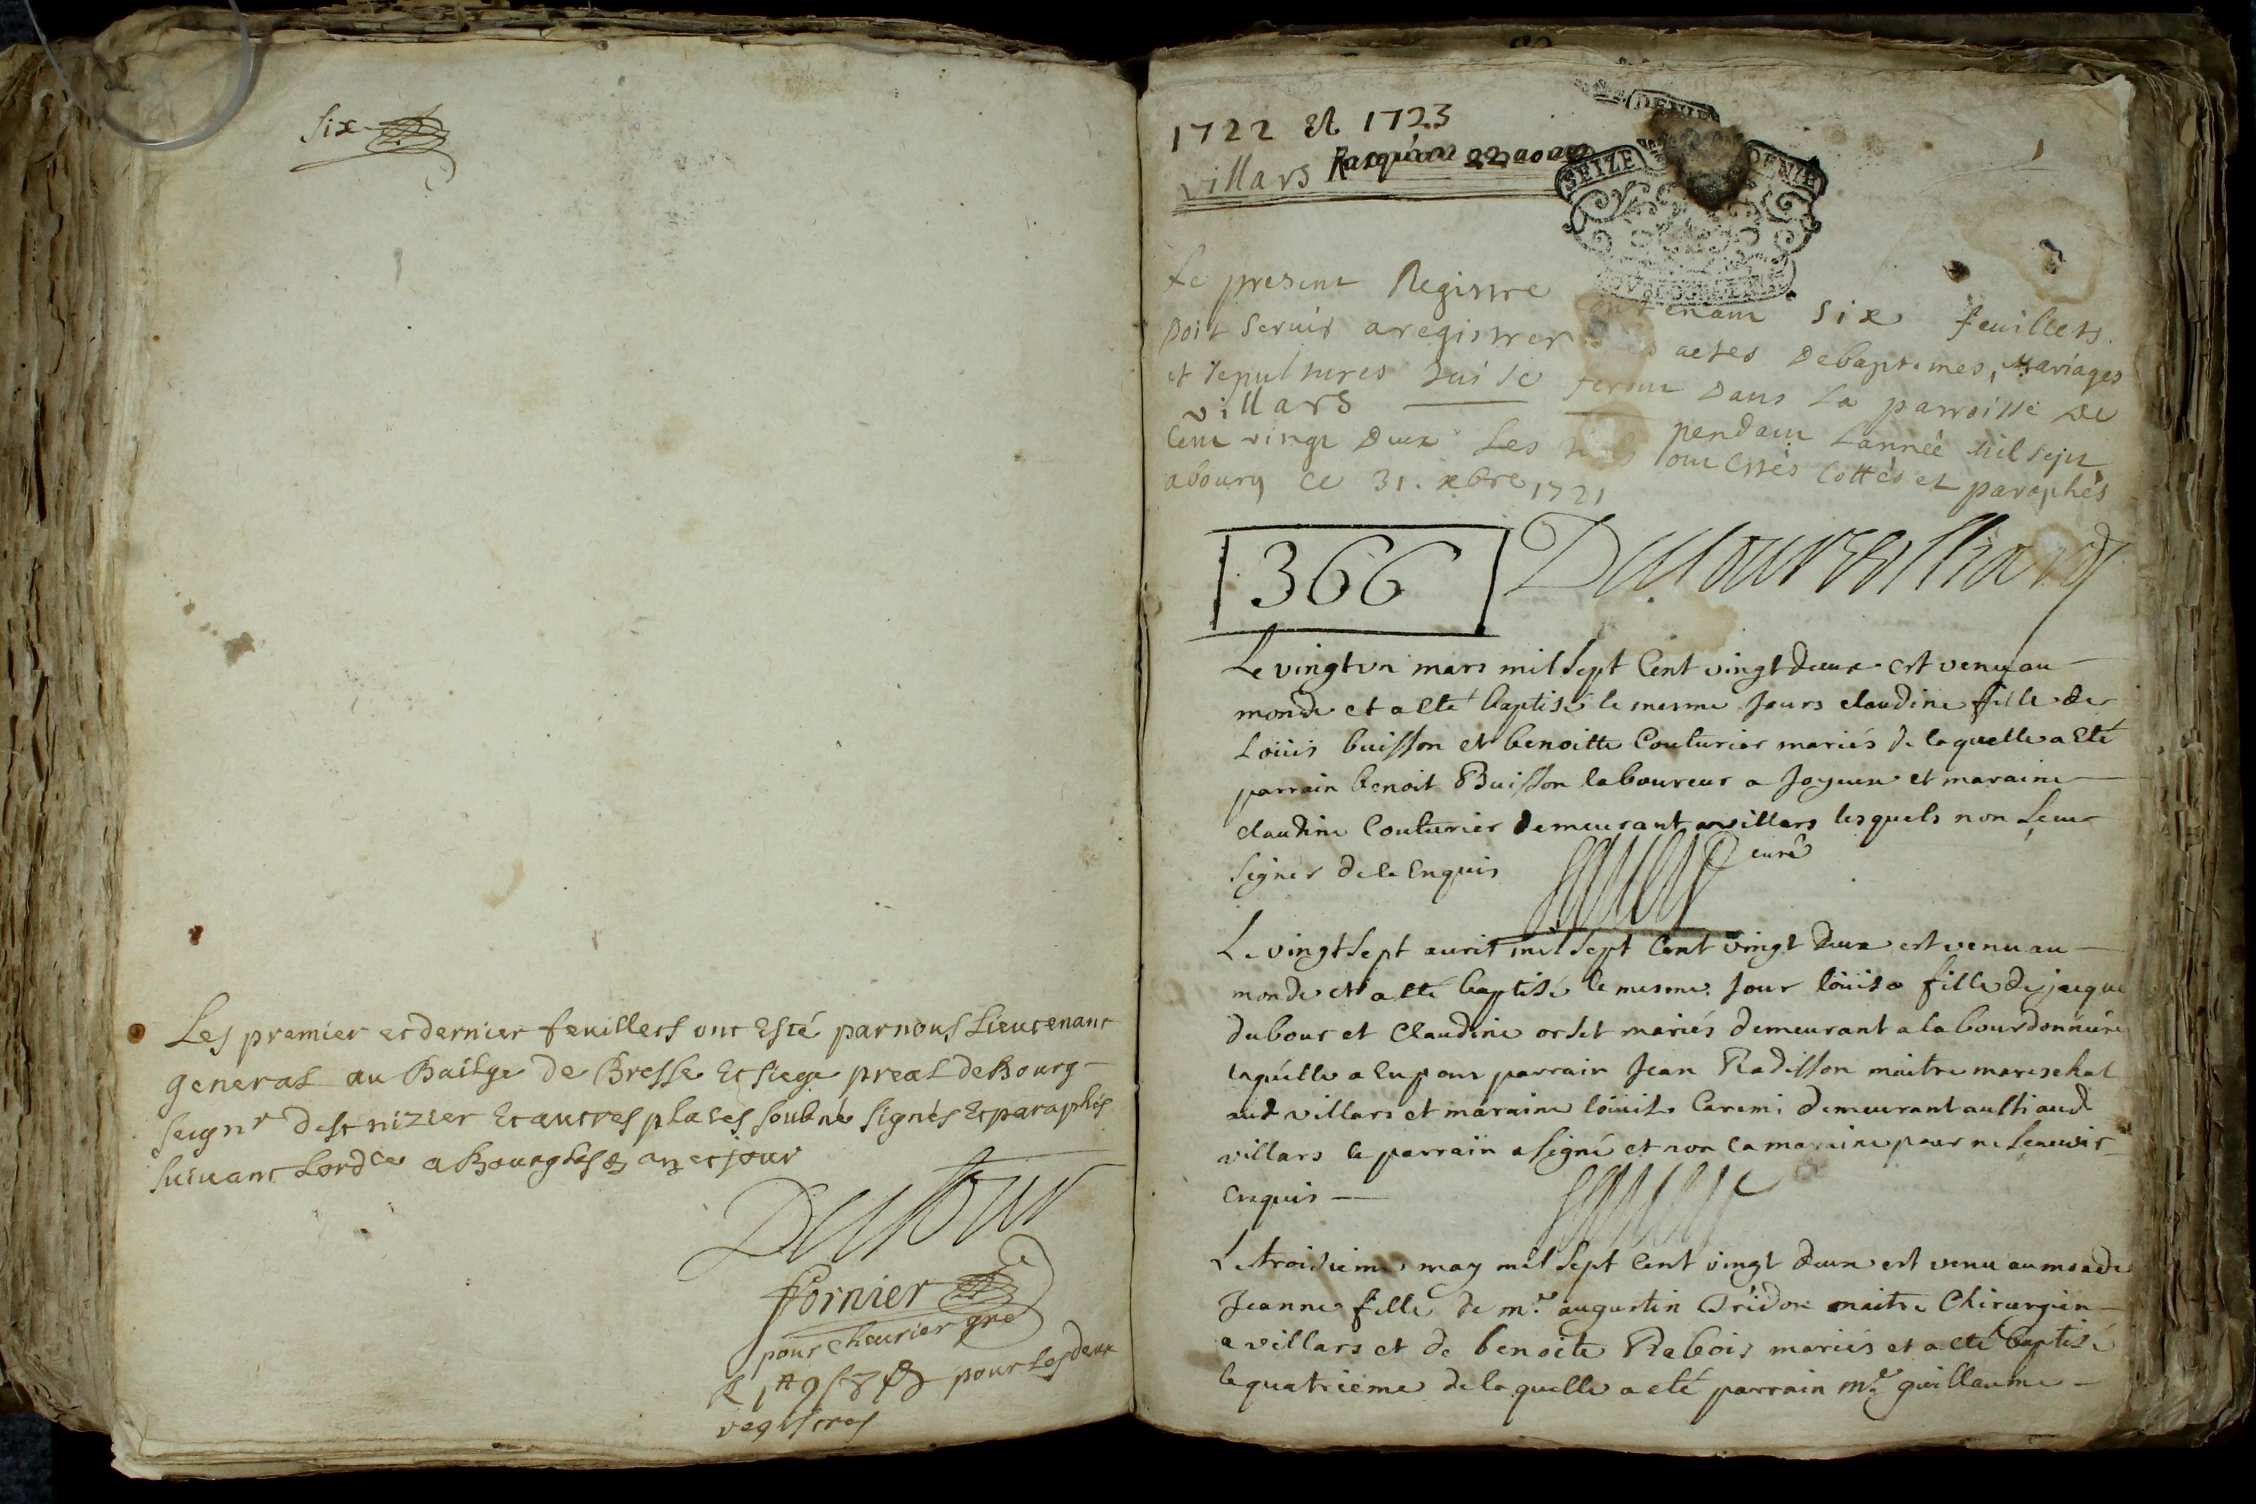 six
Les premier et dernier feuillets ont Esté par nous Lieutenant
general au Bailge de Bresse Et siege preal de Bourg
seignr de st nizier Et autres places soubné signés Et paraphés
suivant Lordce a Bourg Les an et jour
Fornier
pour Cheurier gre
pour Les deux
registres
1722 et 1723
villars
SEIZE DENIE
Le present Registre contenant six feuillets
Doit servir a registrer les actes de baptemes, Mariages
et sepultures qui se feront Dans La parroisse de
villars pendant Lannée Mil sept
Cent vingt Deux Les ont Estés Cottés et paraphés
a bourg ce 31. xbre 1721
366
Le vingt un mars mil sept Cent vingt deux est venu au
monde et a eté baptisé le mesme Jours claudine fille de
Loüis buisson et benoitte Couturier mariés de laquelle a eté
parrain benoit Buisson laboureur a Joyeux et maraine
claudine Couturier demeurant a villars lesquels non sçeu
signer de ce Enquis
curé
Le vingt sept avril mil sept Cent vingt deux est venu au
monde et a eté baptisé le mesme Jour loüise fille de jacque
dubour et Claudine orset mariés demeurant a la bourdonniere
laquelle a eu pour parrain Jean Radisson maitre mareschal
aud villars et maraine loüise demeurant aussi aud
villars le parrain a signé et non la maraine pour ne sçavoir
Enquis
Le troisieme may mil sept Cent vingt deux est venu au monde
Jeanne fille de mre augustin maitre Chirurgien
a villars et de benoite Rebois mariés et a eté baptisé
le quatrieme de laquelle a eté parrain mre guillaume